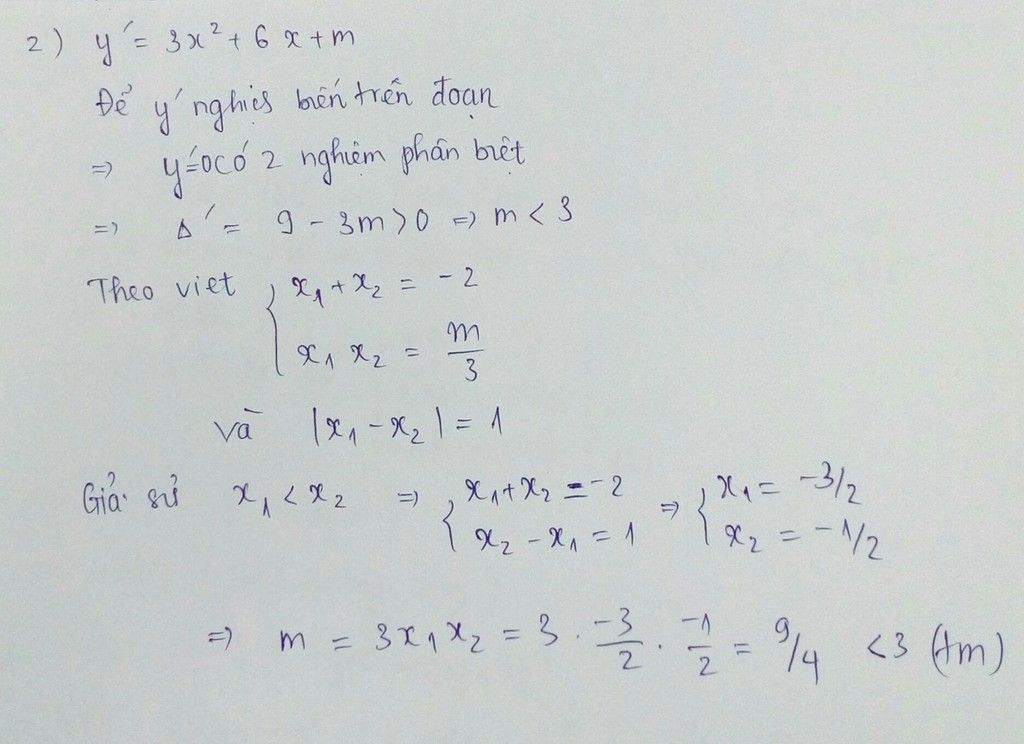 2) y' = 3x² + 6x + m
Để y' nghịch biến trên đoạn
=> y'=0 có 2 nghiệm phân biệt
=> Δ' = 9 - 3m > 0 => m < 3
Theo viet { x₁ + x₂ = -2
x₁ x₂ = m/3
và |x₁ - x₂| = 1
Giả sử x₁ < x₂ => { x₁ + x₂ = -2 => { x₁ = -3/2
x₂ - x₁ = 1 x₂ = -1/2
=> m = 3x₁x₂ = 3 . -3/2 . -1/2 = 9/4 < 3 (tm)